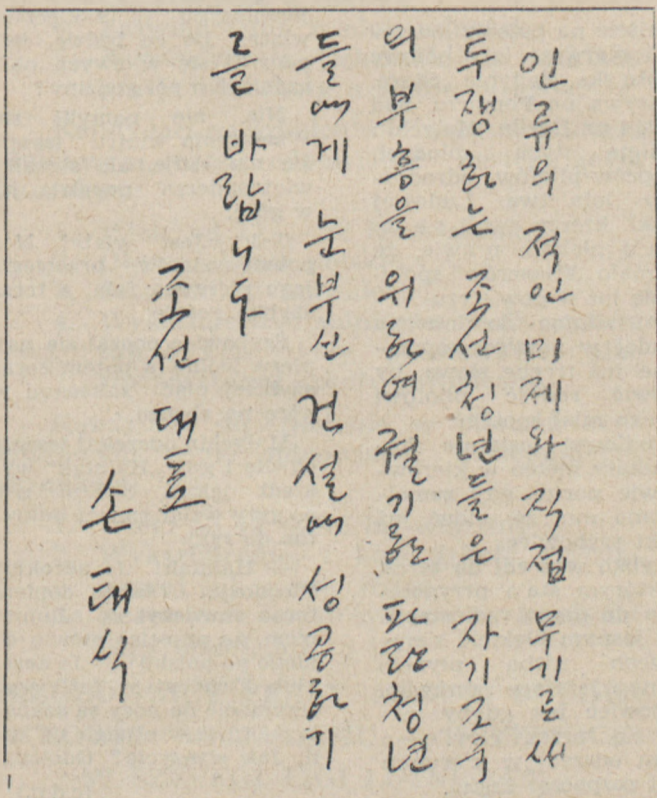 인류의 적인 미제와 직접 무기로써
투쟁하는 조선청년들은 자기조국
의 부흥을 위하여 궐기한 파란청년
들에게 눈부신 건설에 성공하기
를 바랍니다
조선 대표
손 태식